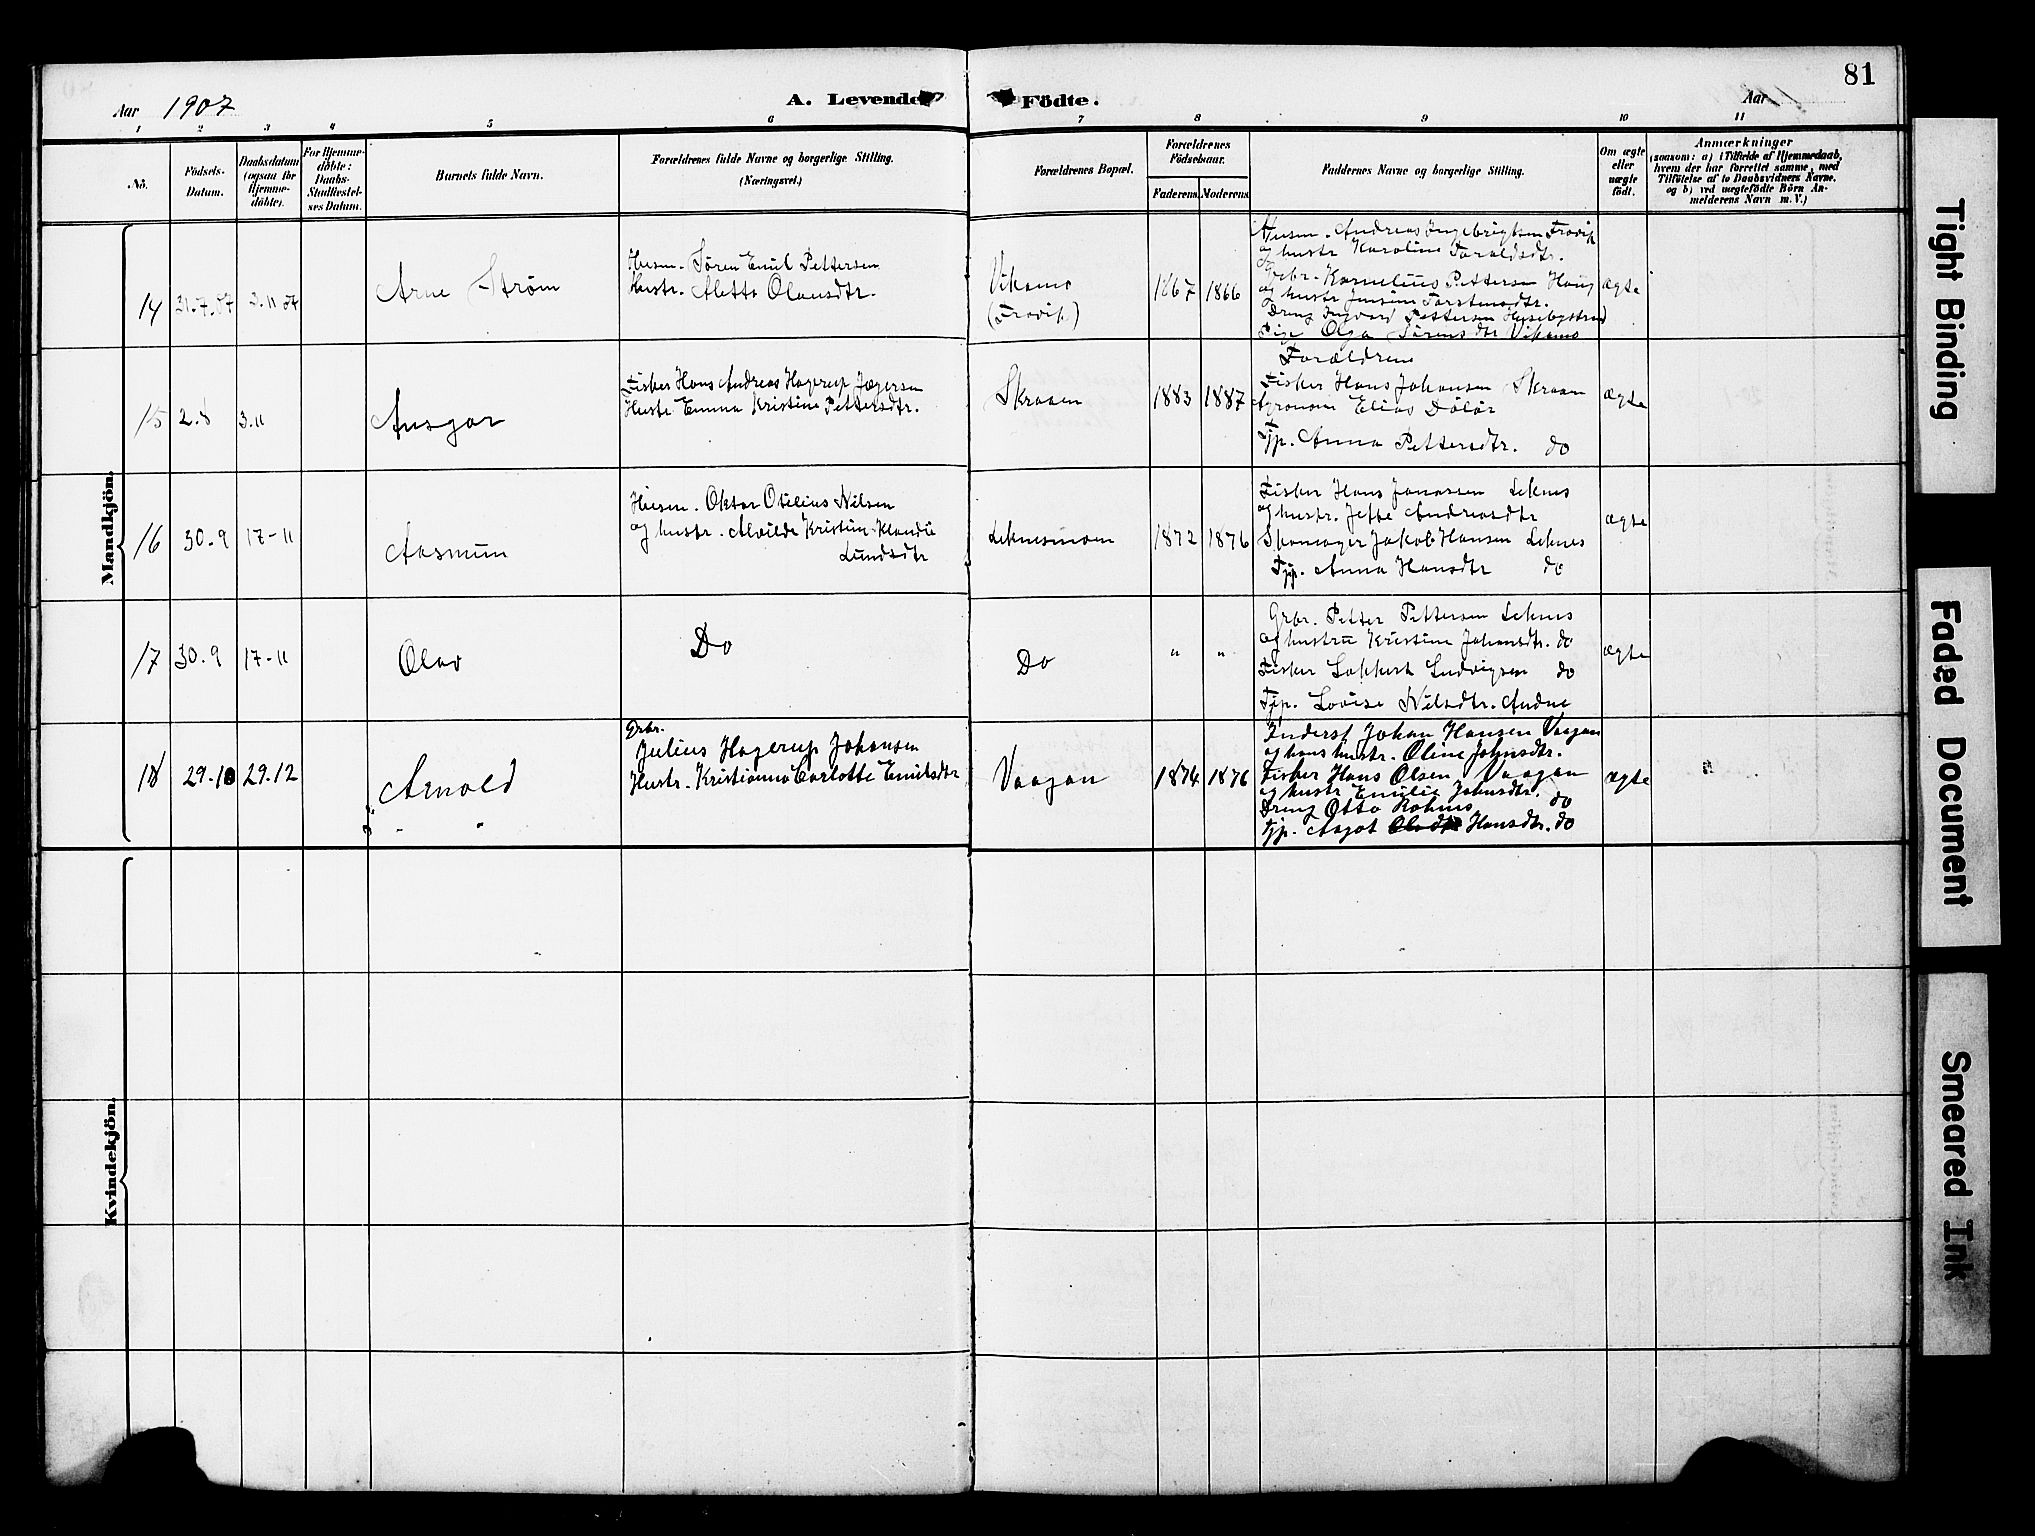 81
Aar 1907
A. Levende
Födte.
Aar
1 2 3 4 5 6 7 8 9 10 11
No.
Födsels-
Datum.
Daabsdatum
(ogsaa for
Hjemme-
döbte).
For Hjemme-
döbte:
Daabs-
Stadfæstel-
ses Datum.
Barnets fulde Navn.
Forældrenes fulde Navne og borgerlige Stilling.
(Næringsvei.)
Forældrenes Bopæl.
Forældrenes
Födselsaar.
Faderens.
Moderens.
Faddernes Navne og borgerlige Stilling.
Om ægte
eller
uægte
födt.
Anmærkninger
(saasom: a) i Tilfælde af Hjemmedaab,
hvem der har forrettet samme, med
Tilföielse af to Daabsvidners Navne,
og b) ved uægtefödte Börn An-
melderens Navn m. V.)
Mandkjön.
14
31.7.07
3.11 07
Arne Strøm
Husm. Søren Emil Pettersen
Hustr. Aletta Olausdtr.
Vikamo
(Frovik)
1867
1866
Husm. Andreas Ingebrigtsen Frovik
og hustr Karoline Taraldsdtr.
Grbr. Kornelius Pettersen Haug
og hustr Jensine Torstensdtr.
Dreng Ingvard Pettersen Husebystrand
Pige Olga Sørensdtr Vikamo
ægte
15
2.8
3.11
Ansgar
Fisker Hans Andreas Hagerup Jægersen
Hustr Emma Kristine Pettersdtr.
Skraaen
1883
1887
Forældrene
Fisker Hans Johansen Skraaen
Agronom Elias Dølør
Tjp. Anna Pettersdtr. do
ægte
16
30.9
17-11
Aasmun
Husm. Oktav Otelius Nilsen
og hustr. Alvilde Kristine Klaudie
Lundsdtr
Leknesmoen
1872
1876
Fisker Hans Jonassen Leknes
og hustr. Jette Andreasdtr
Skomager Jakob Hansen Leknes
Tjp. Anna Hansdtr do
ægte
17
30.9
17-11
Olav
Do
Do
"
"
Grbr. Petter Pettersen Leknes
og hustru Kristine Johansdtr. do
Fisker Ludvigsen do
Tjp. Lovise Nilsdtr.
ægte
18
29-10
29.12
Arnold
Grbr.
Julius Hagerup Johansen
Hustr. Kristianna Carlotte Emilsdtr
Vaagan
1874
1876
Inderst Johan Hansen Vaagan
og hans hustr. Oline Johnsdtr.
Fisker Hans Olsen Vaagan
og hustr Emilie Johnsdtr.
Dreng Otto do
Tjp. Aagot Hansdtr. do
ægte
Kvindekjön.
Tight Binding
Faded Document
Smeared Ink